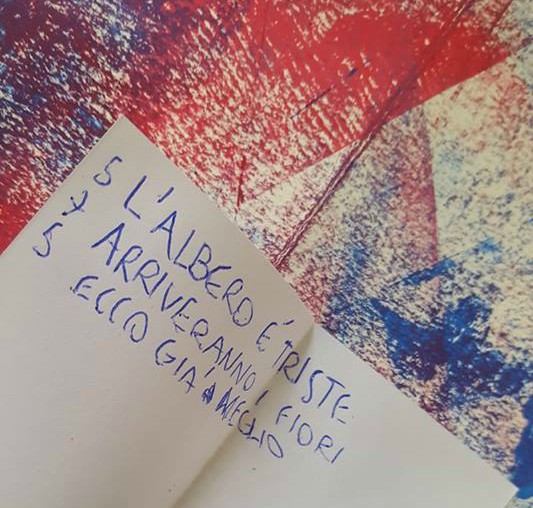 5 L'ALBERO É TRISTE
7 ARRIVERANNO I FIORI
5 ECCO GIÀ MEGLIO